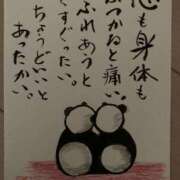 心も身体も
ぶつかると痛い
ふれあうと
くすぐったい。
ちょうどいいと
あったかい。